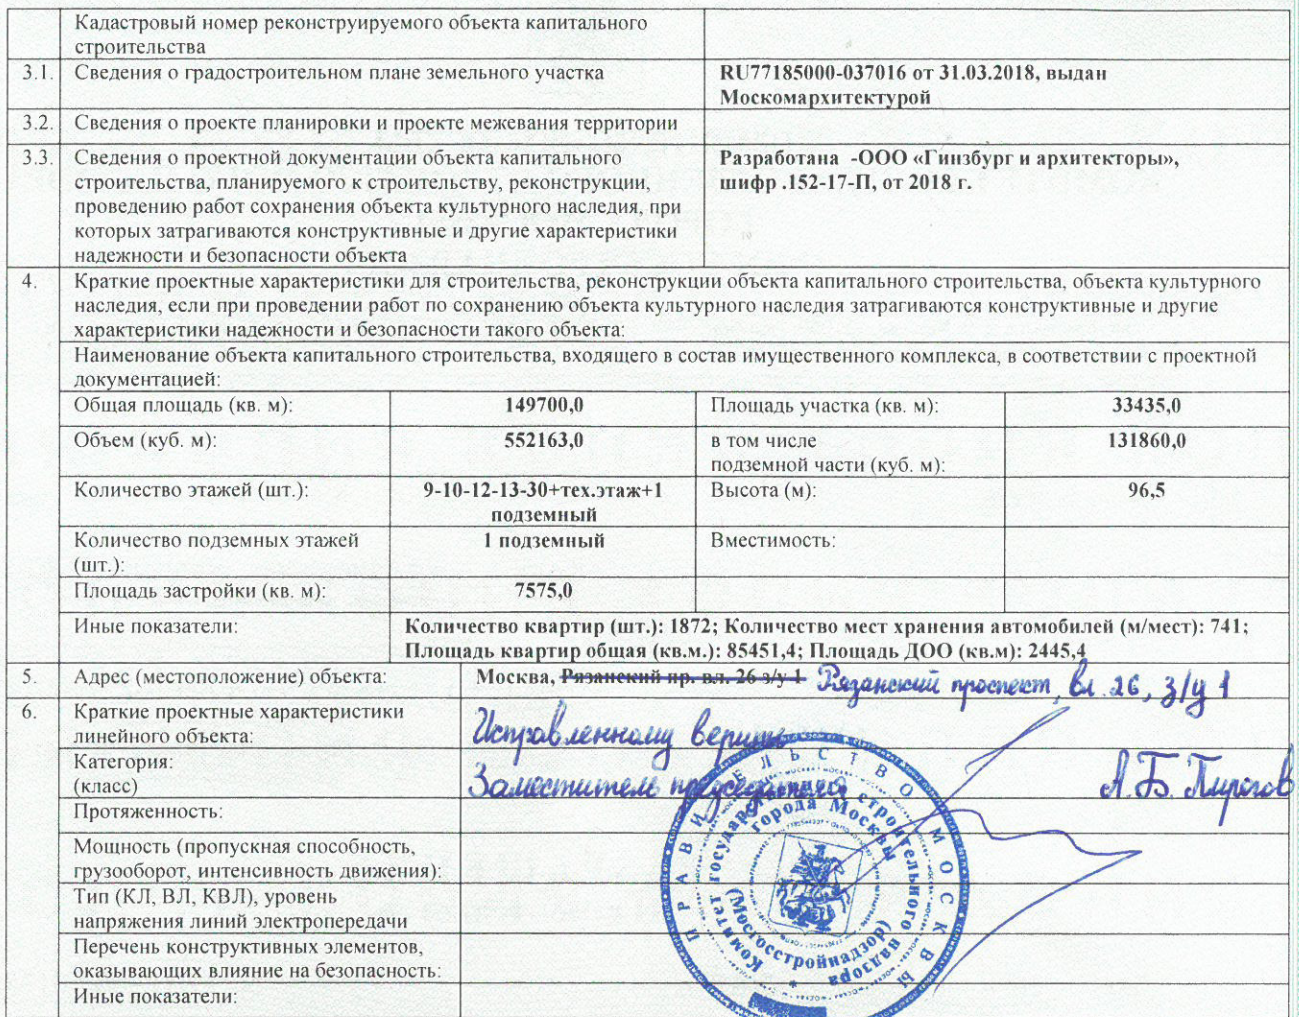 Кадастровый номер реконструируемого объекта капитального
строительства
3.1. Сведения о градостроительном плане земельного участка
RU77185000-037016 от 31.03.2018, выдан
Москомархитектурой
3.2. Сведения о проекте планировки и проекте межевания территории
3.3. Сведения о проектной документации объекта капитального
строительства, планируемого к строительству, реконструкции,
проведению работ сохранения объекта культурного наследия, при
которых затрагиваются конструктивные и другие характеристики
надежности и безопасности объекта
Разработана -ООО «Гинзбург и архитекторы»,
шифр .152-17-П, от 2018 г.
4. Краткие проектные характеристики для строительства, реконструкции объекта капитального строительства, объекта культурного
наследия, если при проведении работ по сохранению объекта культурного наследия затрагиваются конструктивные и другие
характеристики надежности и безопасности такого объекта:
Наименование объекта капитального строительства, входящего в состав имущественного комплекса, в соответствии с проектной
документацией:
Общая площадь (кв. м): 149700,0 Площадь участка (кв. м): 33435,0
Объем (куб. м): 552163,0 в том числе
подземной части (куб. м): 131860,0
Количество этажей (шт.): 9-10-12-13-30+тех.этаж+1
подземный
Высота (м): 96,5
Количество подземных этажей
(шт.):
1 подземный Вместимость:
Площадь застройки (кв. м): 7575,0
Иные показатели: Количество квартир (шт.): 1872; Количество мест хранения автомобилей (м/мест): 741;
Площадь квартир общая (кв.м.): 85451,4; Площадь ДОО (кв.м): 2445,4
5. Адрес (местоположение) объекта: Москва, Рязанский пр. вл. 26 з/у 1 Рязанский проспект, вл. 26, з/у 1
6. Краткие проектные характеристики
линейного объекта:
Исправленному верить
Категория:
(класс)
Заместитель председателя А.Б. Пирогов
Протяженность:
Мощность (пропускная способность,
грузооборот, интенсивность движения):
Тип (КЛ, ВЛ, КВЛ), уровень
напряжения линий электропередачи
Перечень конструктивных элементов,
оказывающих влияние на безопасность:
Иные показатели:
ПРАВИТЕЛЬСТВО МОСКВЫ
Комитет государственного строительного надзора
города Москвы
(Мосгосстройнадзор)